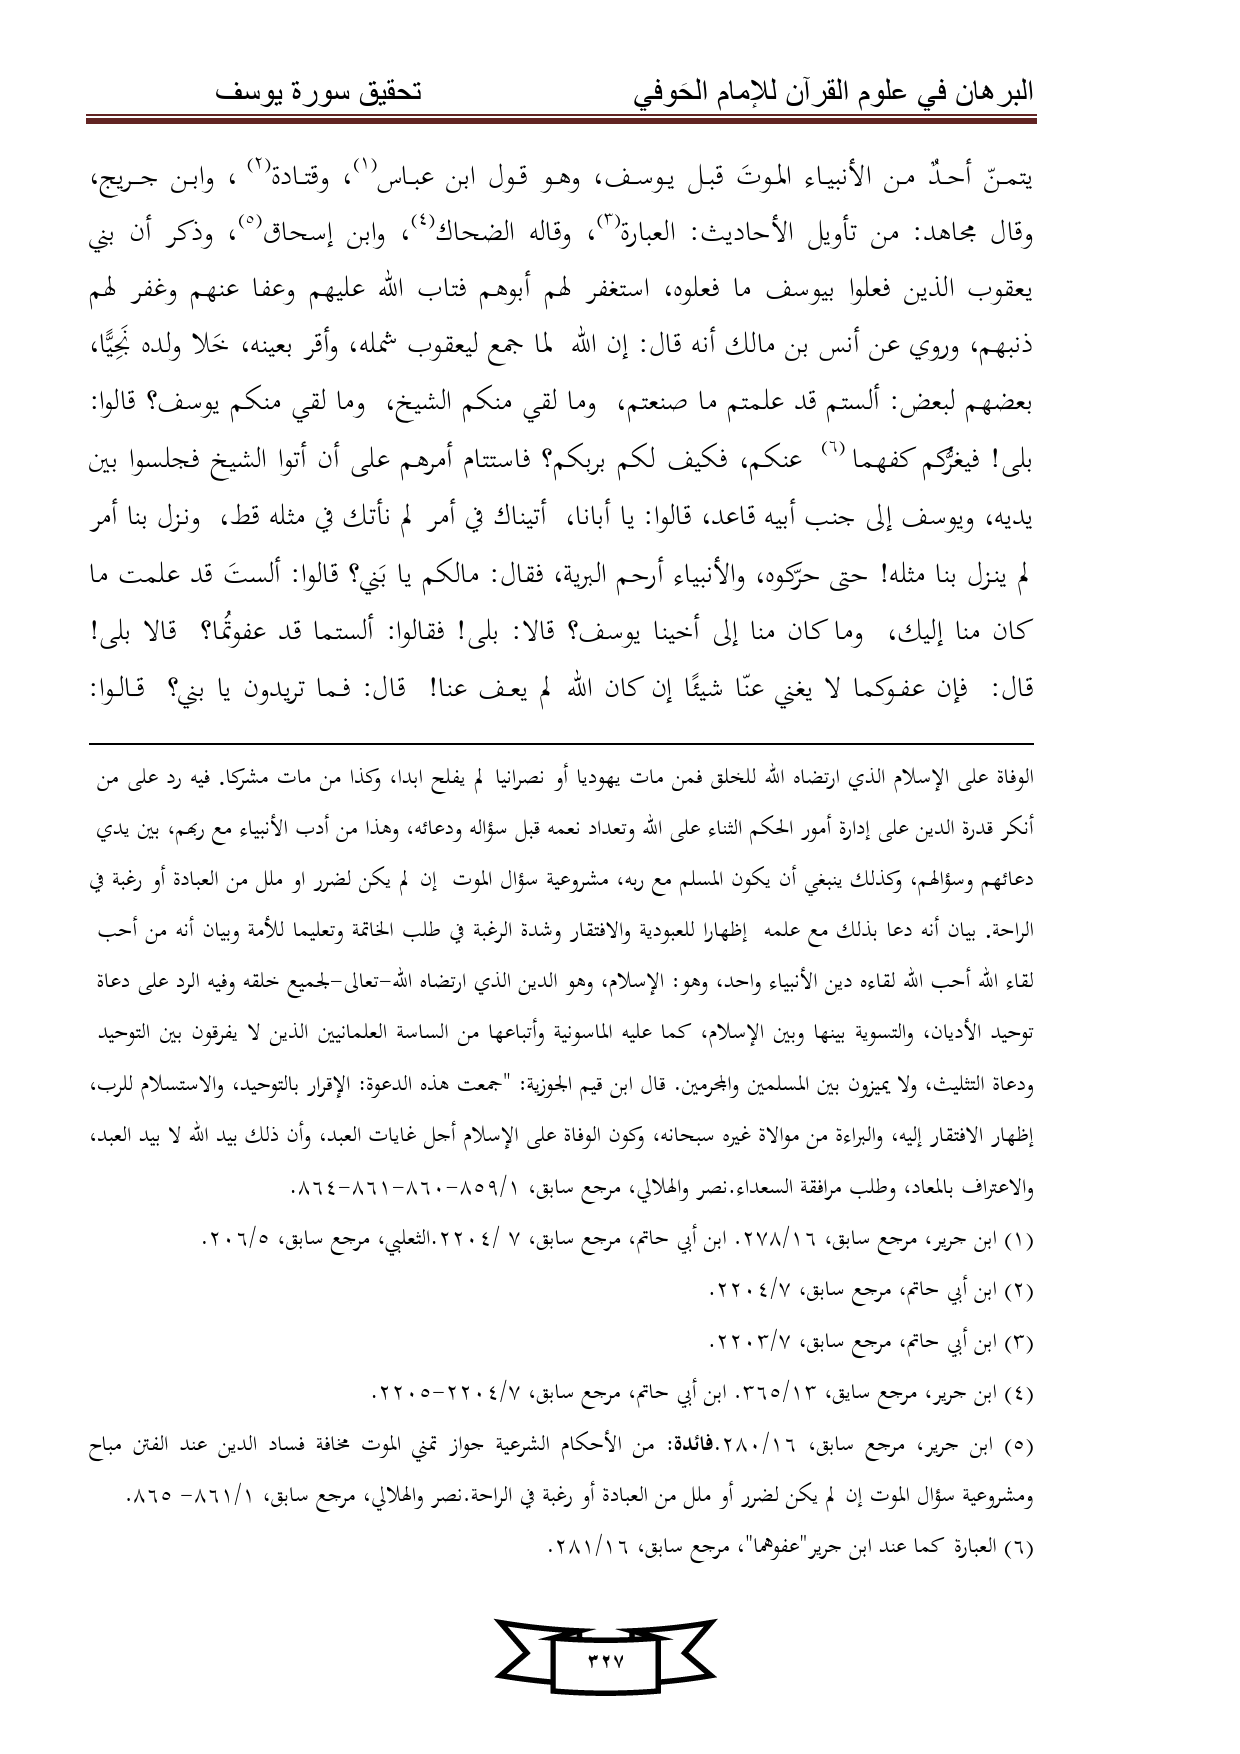 البرهان في علوم القرآن للإمام الحَوفي تحقيق سورة يوسف
يتمنّ أحدٌ من الأنبياء الموتَ قبل يوسف، وهو قول ابن عباس(١)، وقتادة(٢) ، وابن جريج،
وقال مجاهد: من تأويل الأحاديث: العبارة(٣)، وقاله الضحاك(٤)، وابن إسحاق(٥)، وذكر أن بني
يعقوب الذين فعلوا بيوسف ما فعلوه، استغفر لهم أبوهم فتاب الله عليهم وعفا عنهم وغفر لهم
ذنبهم، وروي عن أنس بن مالك أنه قال: إن الله لما جمع ليعقوب شمله، وأقر بعينه، خَلا ولده نَجِيًّا،
بعضهم لبعض: ألستم قد علمتم ما صنعتم، وما لقي منكم الشيخ، وما لقي منكم يوسف؟ قالوا:
بلى! فيغرُّكم كفهما (٦) عنكم، فكيف لكم بربكم؟ فاستتام أمرهم على أن أتوا الشيخ فجلسوا بين
يديه، ويوسف إلى جنب أبيه قاعد، قالوا: يا أبانا، أتيناك في أمر لم نأتك في مثله قط، ونزل بنا أمر
لم ينزل بنا مثله! حتى حرّكوه، والأنبياء أرحم البرية، فقال: مالكم يا بَني؟ قالوا: ألستَ قد علمت ما
كان منا إليك، وما كان منا إلى أخينا يوسف؟ قالا: بلى! فقالوا: ألستما قد عفوتُما؟ قالا بلى!
قال: فإن عفوكما لا يغني عنّا شيئًا إن كان الله لم يعف عنا! قال: فما تريدون يا بني؟ قالوا:
الوفاة على الإسلام الذي ارتضاه الله للخلق فمن مات يهوديا أو نصرانيا لم يفلح ابدا، وكذا من مات مشركا. فيه رد على من
أنكر قدرة الدين على إدارة أمور الحكم الثناء على الله وتعداد نعمه قبل سؤاله ودعائه، وهذا من أدب الأنبياء مع ربهم، بين يدي
دعائهم وسؤالهم، وكذلك ينبغي أن يكون المسلم مع ربه، مشروعية سؤال الموت إن لم يكن لضرر او ملل من العبادة أو رغبة في
الراحة. بيان أنه دعا بذلك مع علمه إظهارا للعبودية والافتقار وشدة الرغبة في طلب الخاتمة وتعليما للأمة وبيان أنه من أحب
لقاء الله أحب الله لقاءه دين الأنبياء واحد، وهو: الإسلام، وهو الدين الذي ارتضاه الله-تعالى-لجميع خلقه وفيه الرد على دعاة
توحيد الأديان، والتسوية بينها وبين الإسلام، كما عليه الماسونية وأتباعها من الساسة العلمانيين الذين لا يفرقون بين التوحيد
ودعاة التثليث، ولا يميزون بين المسلمين والمجرمين. قال ابن قيم الجوزية: "جمعت هذه الدعوة: الإقرار بالتوحيد، والاستسلام للرب،
إظهار الافتقار إليه، والبراءة من موالاة غيره سبحانه، وكون الوفاة على الإسلام أجل غايات العبد، وأن ذلك بيد الله لا بيد العبد،
والاعتراف بالمعاد، وطلب مرافقة السعداء.نصر والهلالي، مرجع سابق، ٨٥٩/١-٨٦٠-٨٦١-٨٦٤.
(١) ابن جرير، مرجع سابق، ٢٧٨/١٦. ابن أبي حاتم، مرجع سابق، ٧ /٢٢٠٤.الثعلبي، مرجع سابق، ٢٠٦/٥.
(٢) ابن أبي حاتم، مرجع سابق، ٢٢٠٤/٧.
(٣) ابن أبي حاتم، مرجع سابق، ٢٢٠٣/٧.
(٤) ابن جرير، مرجع سايق، ٣٦٥/١٣. ابن أبي حاتم، مرجع سابق، ٢٢٠٤/٧-٢٢٠٥.
(٥) ابن جرير، مرجع سابق، ٢٨٠/١٦.فائدة: من الأحكام الشرعية جواز تمني الموت مخافة فساد الدين عند الفتن مباح
ومشروعية سؤال الموت إن لم يكن لضرر أو ملل من العبادة أو رغبة في الراحة.نصر والهلالي، مرجع سابق، ٨٦١/١- ٨٦٥.
(٦) العبارة كما عند ابن جرير"عفوهما"، مرجع سابق، ٢٨١/١٦.
٣٢٧